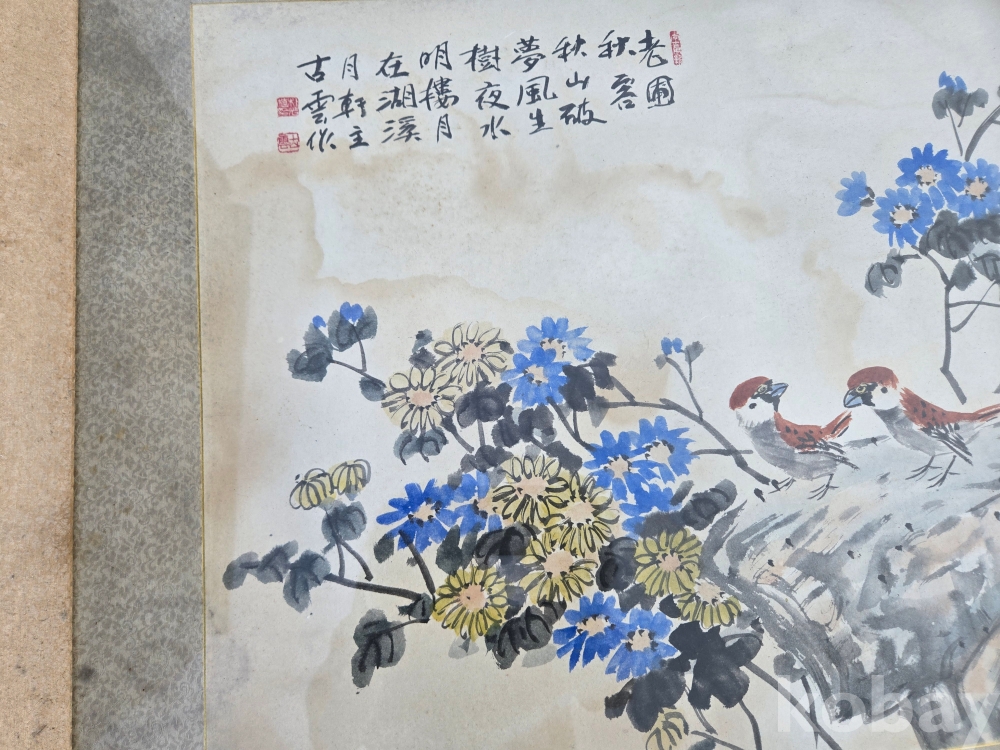 老圃
秋容
秋山破
夢風生
樹夜水
明樓月
在湖溪
月軒主
古雲作
kobay